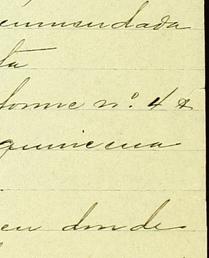 enmendada
ta
forme n.º 4 de
quincena
en donde